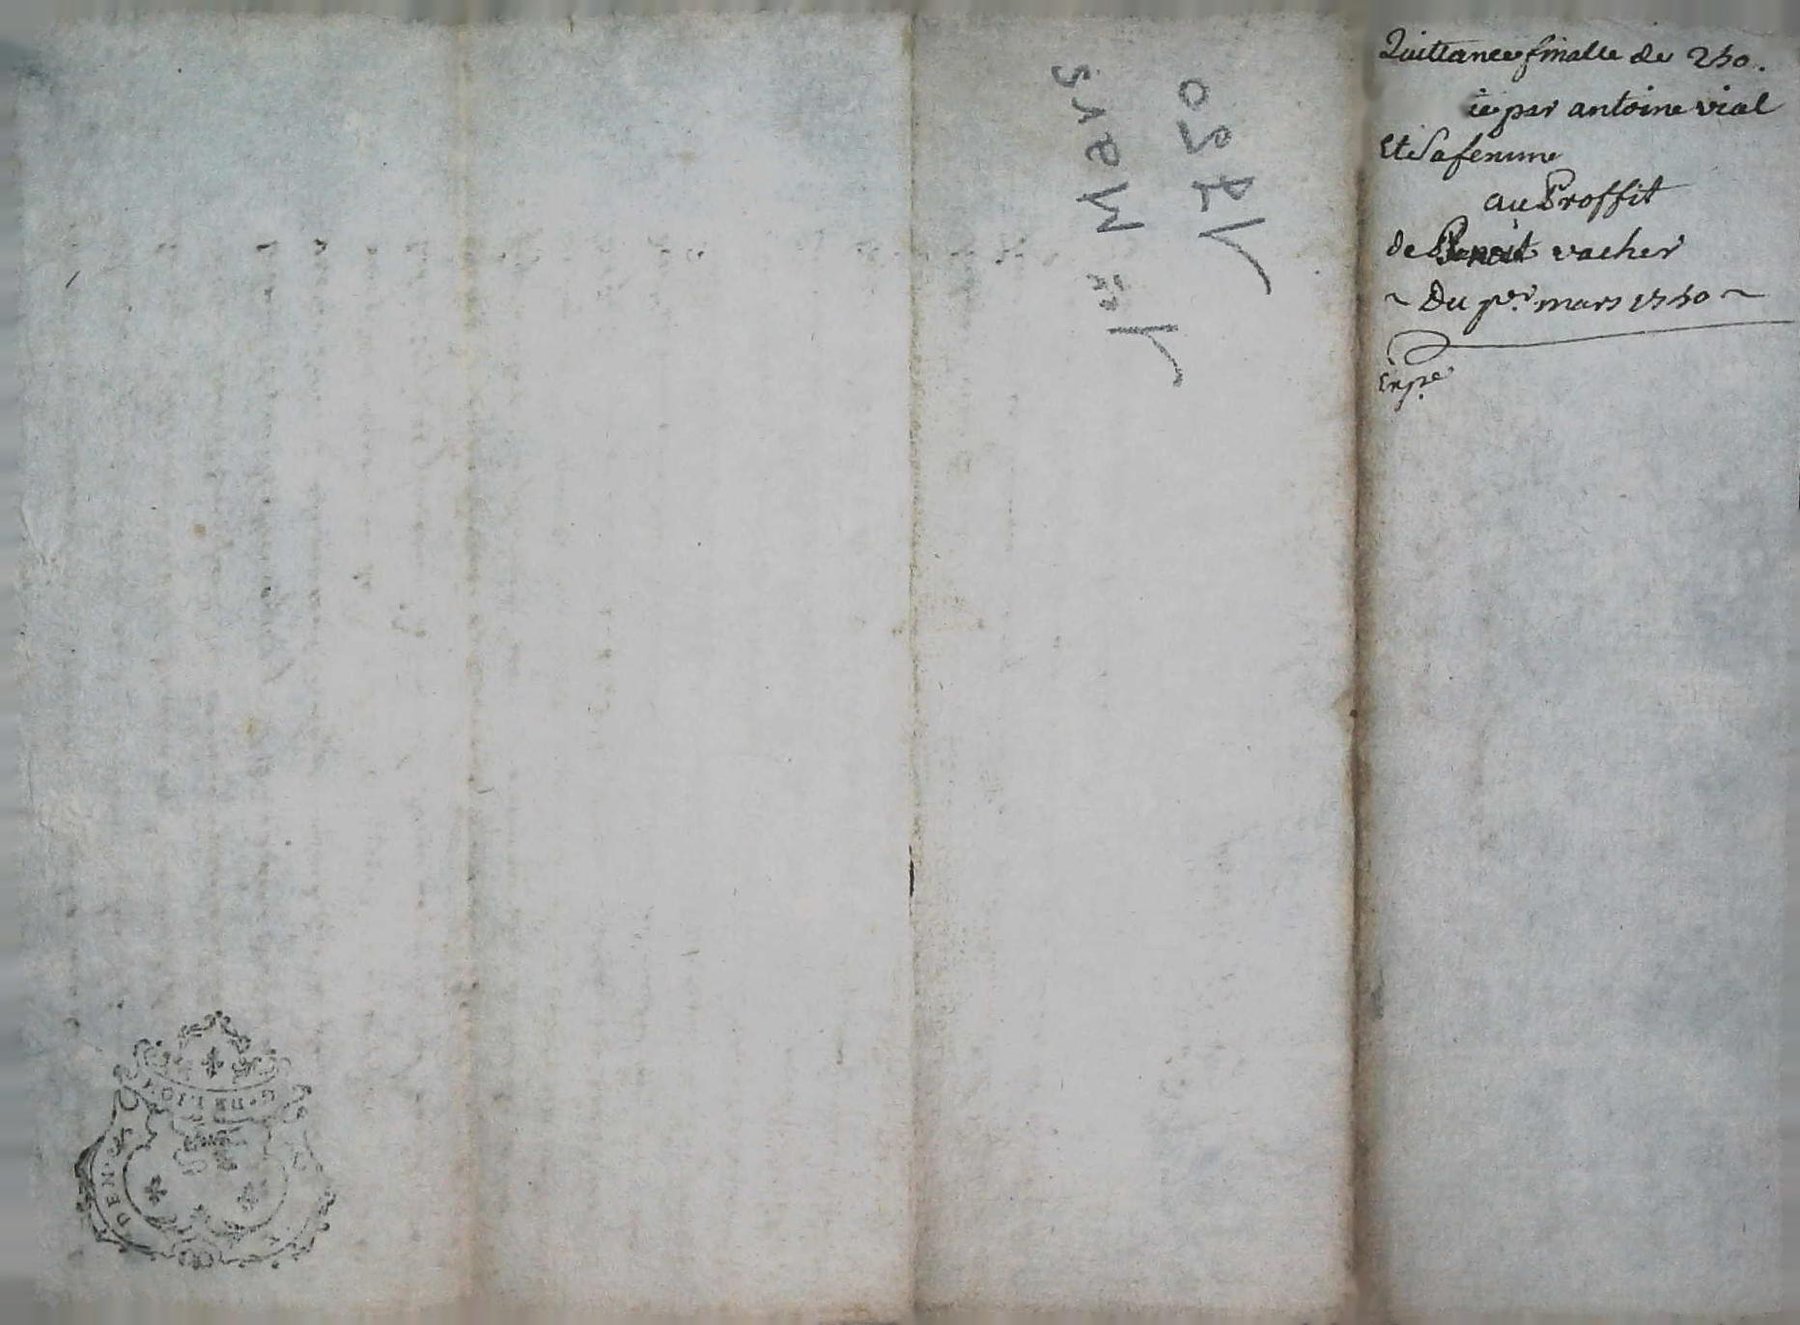 Quittance finalle de 250.
par antoine vial
Et Sa femme
au Proffit
de Benoit vacher
~ Du p.er mars 1750 ~
Exp.e
1er Mars
1750
G. DE LIO
DEN.